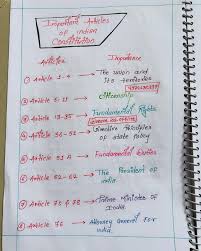 Important Articles
of Indian
Constitution
Articles Importance
① Article 1-4 → The union and
its territories
② Article 5-11 → Citizenship
③ Article 12-35 → Fundamental Rights
④ Article 36-51 → Directive Principles
of state policy
⑤ Article 51 A → Fundamental Duties
⑥ Article 52-62 → The President of
india
⑦ Article → Prime Minister of
India
⑧ Article 76 → Attorney General for
india